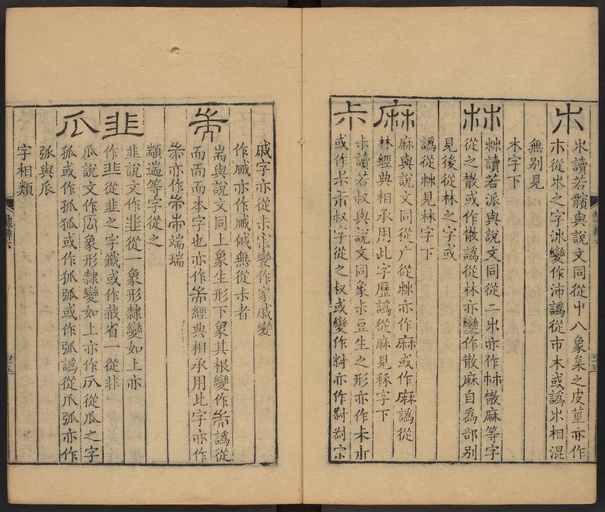 𣎳
𣎳讀若髕與說文同從屮八象枲之皮莖亦作
木從𣎳之字㳈變作沛譌從市木或譌𣎳相混
無别見
木字下
𣏟
𣏟讀若派與說文同從二𣎳亦作林㪔麻等字
從之㪔或作㪔譌從林亦變作散麻自爲部别
見後從林之字或
譌從𣏟見林字下
麻
麻與說文同從广從𣏟亦作麻或作麻譌從
林經典相承用此字歷譌從麻見秝字下
尗
尗讀若叔與說文同象尗豆生之形亦作
或作叔字從之叔或變作亦作
戚字亦從尗變作家戚變
作亦作無從尗者
耑
耑與說文同上象生形下象其根變作耑譌從
而而而本字也亦作耑經典相承用此字亦作
耑亦作端瑞
顓遄等字從之
韭
韭說文作韭從一象形隸變如上亦
作韭從韭之字籤或作韱省一從韭
瓜
瓜說文作象形隸變如上亦作爪從瓜之字
孤或作孤狐或作狐弧或作弧譌從爪弧亦作
弧與𠂢
字相類